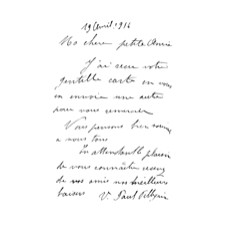 19 Avril 1916
Ma chere petite Amie
J'ai recu votre
gentille carte en vous
en envoie une autre
pour vous remercier
Vous pensons bien
a vous tous
En attendant le plaisir
de vous connaître recevez
de vos amis nos meilleurs
baisers V. Paul